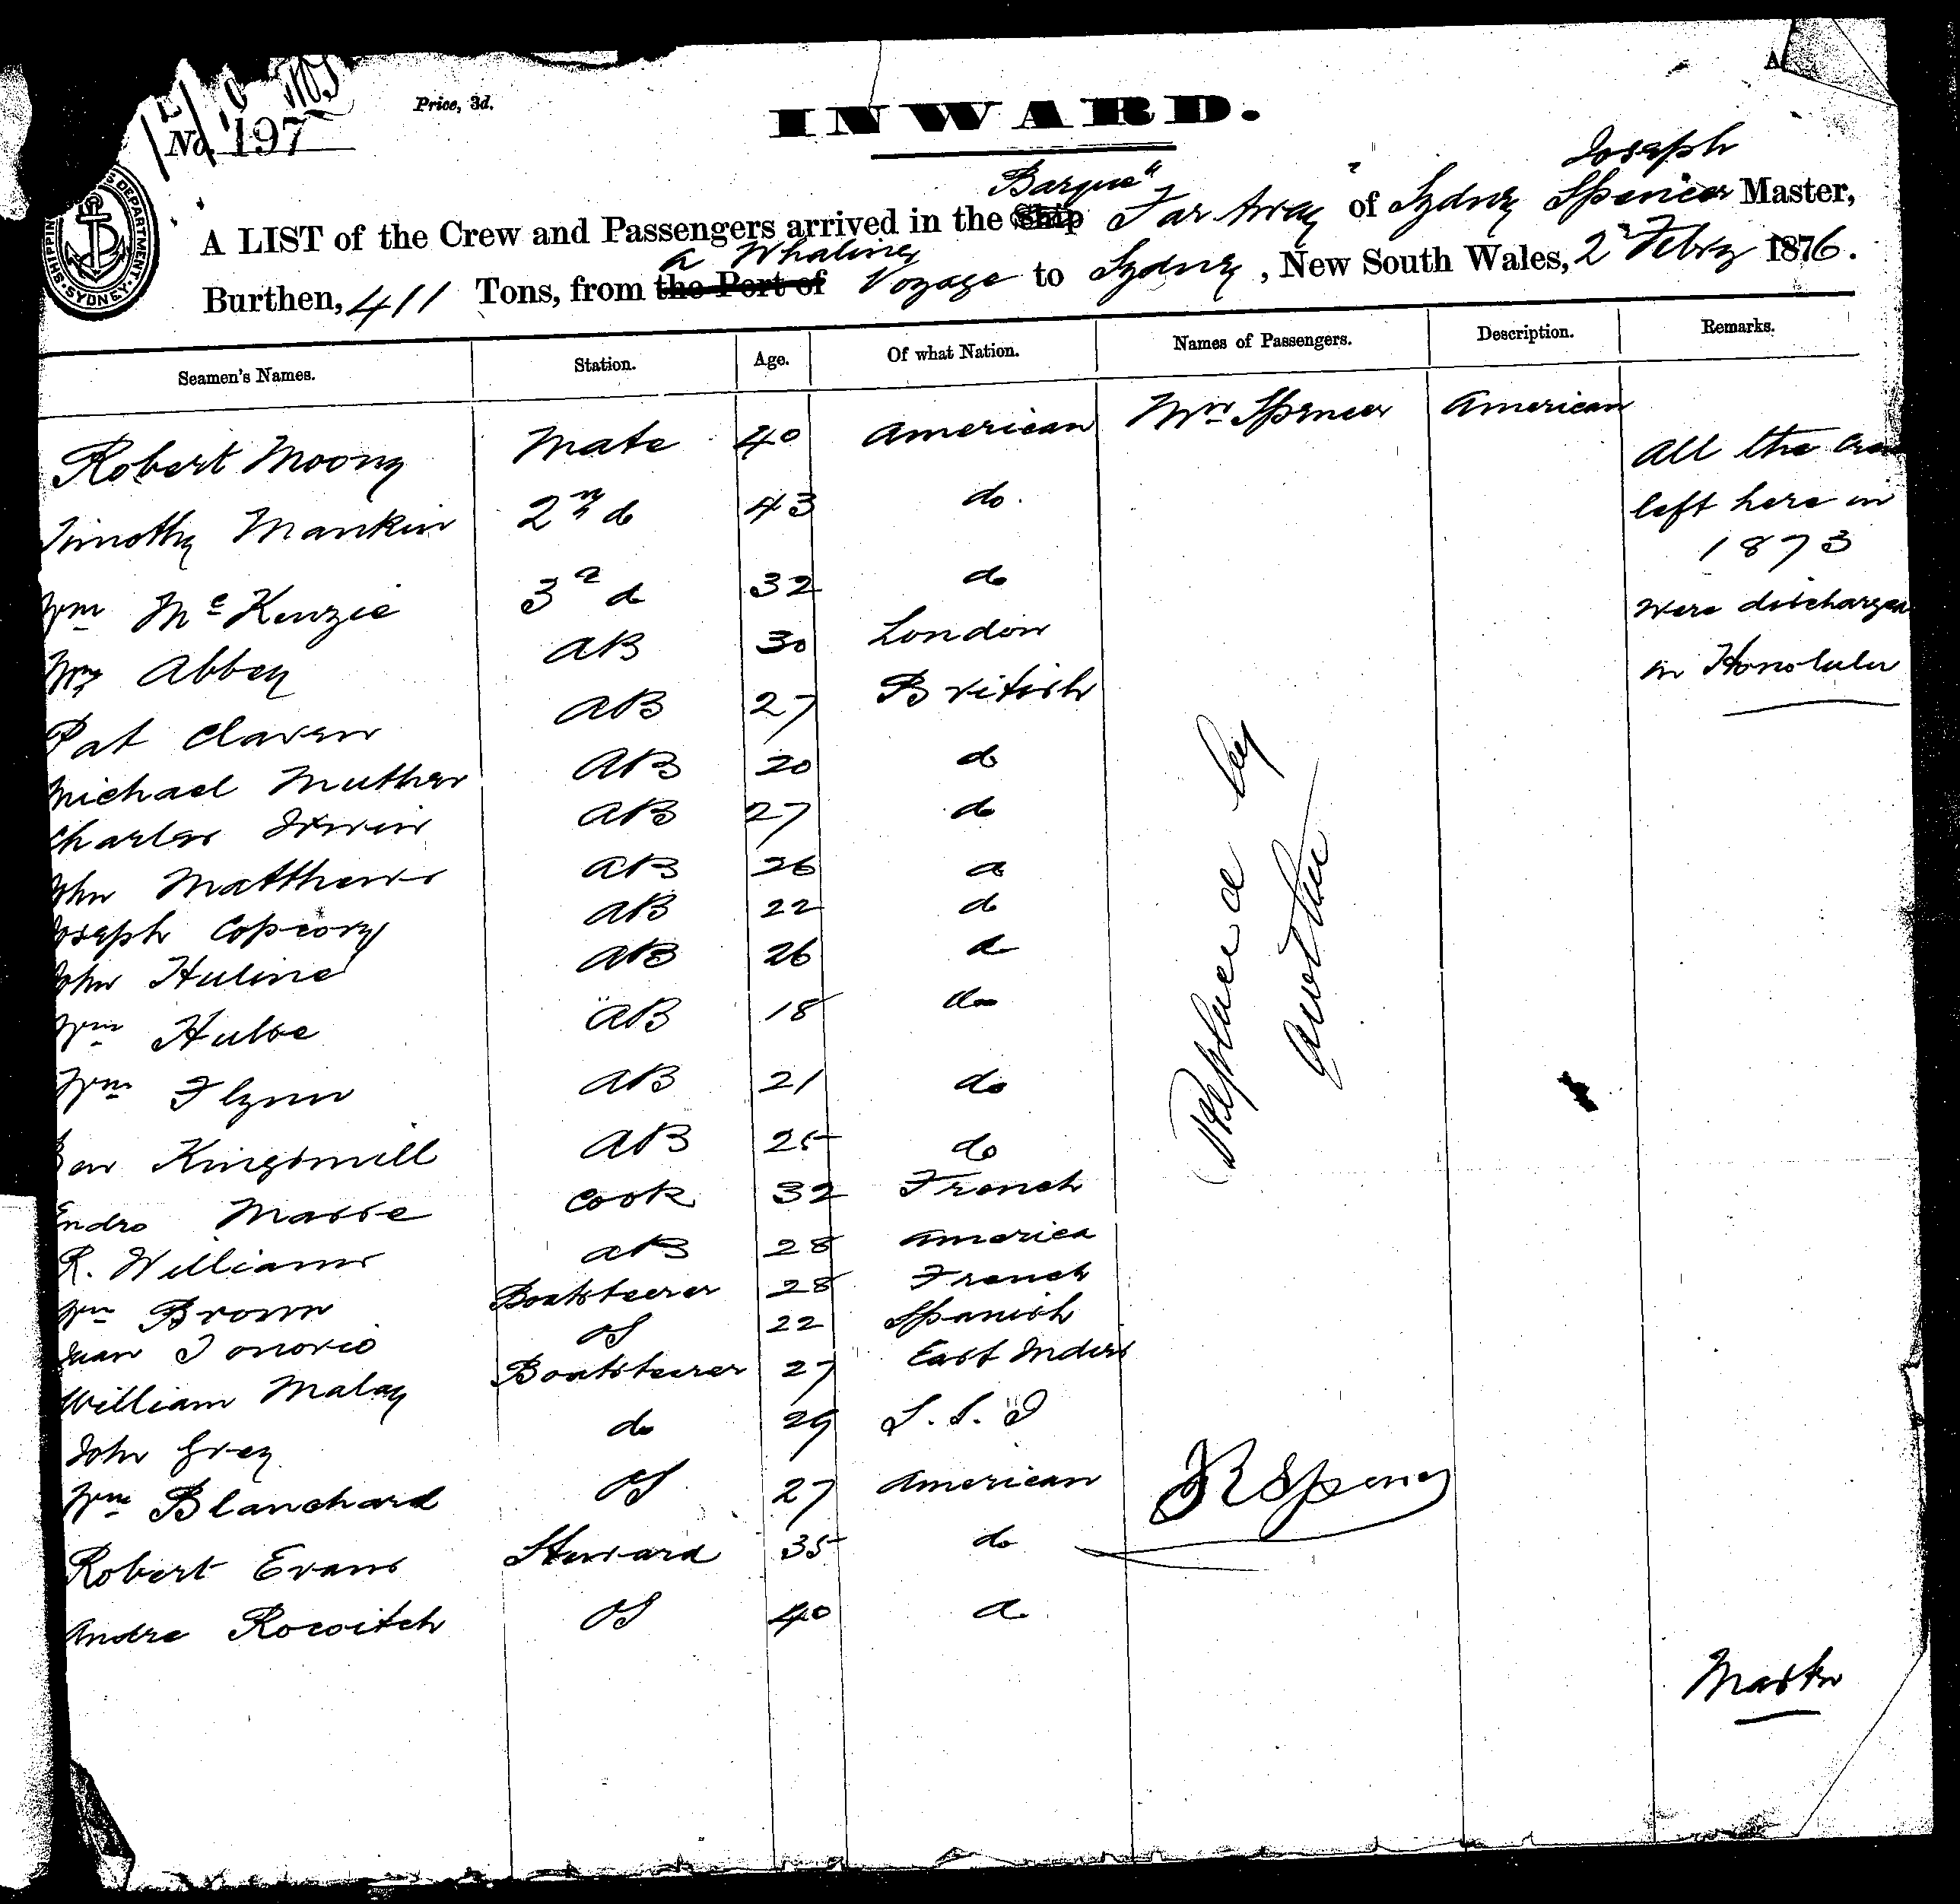 No. 197
Price, 3d.
INWARD.
SHIPPING DEPARTMENT SYDNEY
Joseph
Barque
A LIST of the Crew and Passengers arrived in the ship "Far Away" of Sydney Spencer Master,
a Whaling
Burthen, 411 Tons, from the Port of Voyage to Sydney, New South Wales, 2 Febry 1876.
Seamen's Names. Station. Age. Of what Nation. Names of Passengers. Description. Remarks.
Robert Moony Mate 40 American Mrs Spencer American
All the
Timothy Mankin 2nd do 43 do.
left here in
1873
Wm McKenzie 3rd do 32 do
were discharged
Wm Abbey AB 30 London
in Honolulu
Pat Claren AB 27 British
Michael Muther AB 20 do
Charles Irwin AB 27 do
John Matthews AB 26 do
Joseph AB 22 do
John Huline AB 26 do
Wm Hulse AB 18 do
Wm Flynn AB 21 do
Ben Kingsmill AB 25 do
Endro Masse Cook 32 French
R. Williams AB 28 America
Wm Brown Boatsteerer 28 French
Juan Tonorio OS 22 Spanish
William Malay Boatsteerer 27 East Indies
John Grey do 29 S. S. I
Wm Blanchard OS 27 American
Robert Evans Steward 35 do
Andre Rocoitch OS 40 do
Replaced by
another
J R Spencer
Master